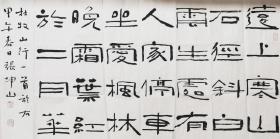 遠上寒山
石徑斜白
雲生處有
人家停車
坐愛楓林
晚霜葉紅
於二月華
杜牧山行一首於右
甲午春日張坤山